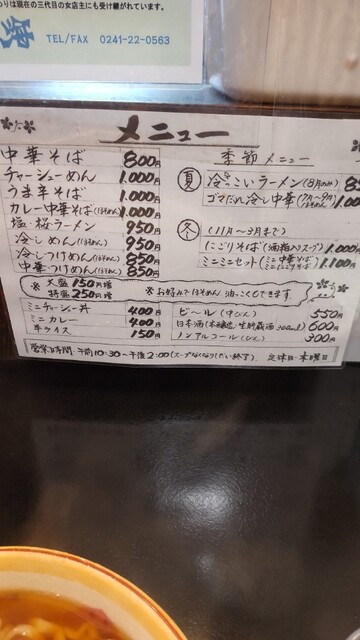 りは現在の三代目の女店主にも受け継がれています。
TEL/FAX 0241-22-0563
メニュー
中華そば 800円
チャーシューめん 1.000円
うま辛そば 1.000円
カレー中華そば(ほそめん) 1.000円
塩・桜ラーメン 950円
冷しめん(ほそめん) 950円
冷しつけめん(ほそめん) 850円
中華つけめん(ほそめん) 850円
※ 大盛 150円増
特盛 250円増
※ お好みでほそめん 油っこくもできます
ミニチャーシュー丼 400円
ミニカレー 400円
半ライス 150円
季節メニュー
夏
冷やっこいラーメン(8月のみ)
ゴマだれ冷し中華
冬 (11月〜3月まで)
にごりそば(酒粕入スープ) 1.000円
ミニミニセット(ミニ中華そば 1.100円
ビール(中びん) 550円
日本酒(本醸造・生貯蔵酒300ml) 600円
ノンアルコール(びん) 300円
営業時間・午前10:30〜午後2:00(スープなくなりしだい終了) 定休日・木曜日